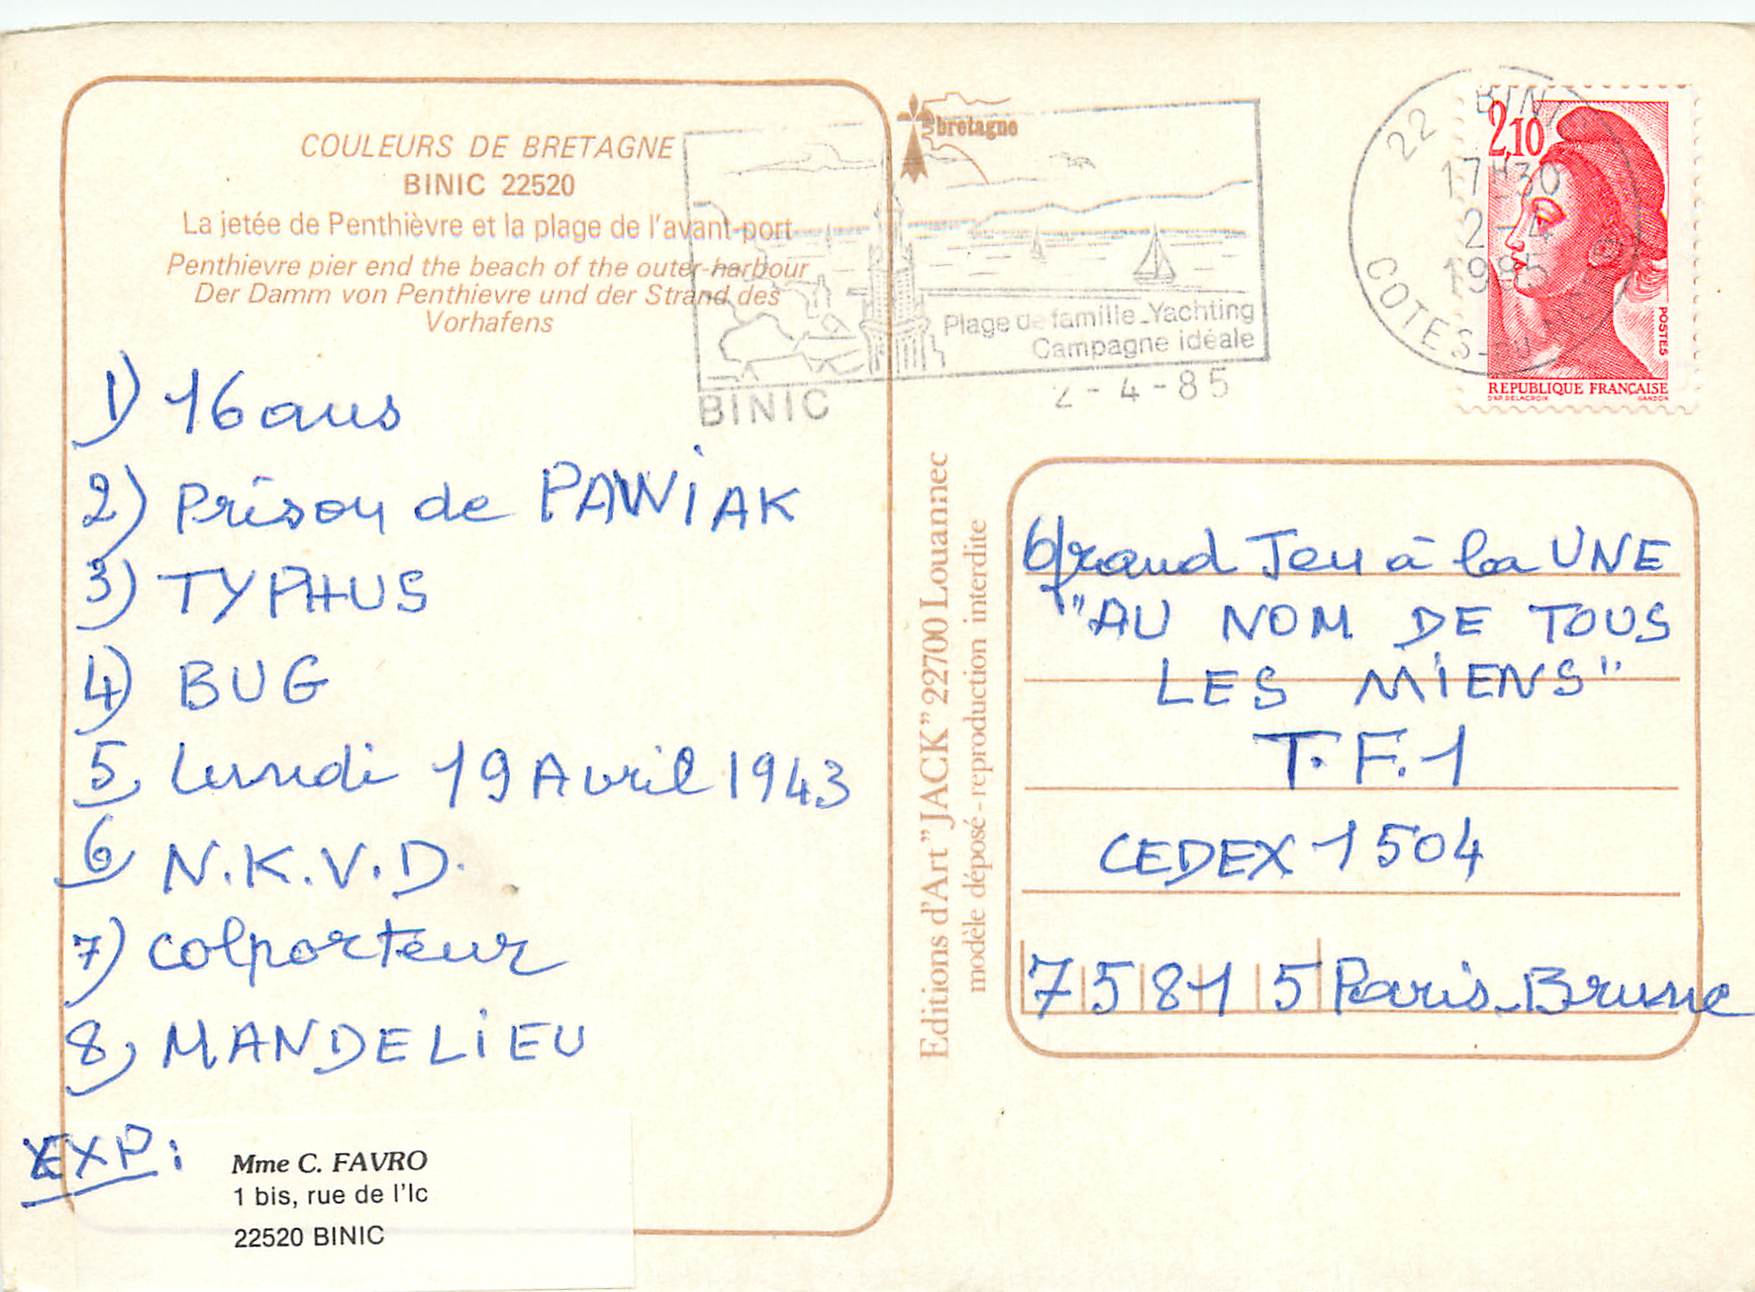 COULEURS DE BRETAGNE
BINIC 22520
La jetée de Penthièvre et la plage de l'avant-port
Penthievre pier end the beach of the outer-harbour
Der Damm von Penthievre und der Strand des
Vorhafens
1) 16 ans
2) Prison de PAWIAK
3) TYPHUS
4) BUG
5) lundi 19 Avril 1943
6) N.K.V.D.
7) colporteur
8) MANDELIEU
EXP:
Mme C. FAVRO
1 bis, rue de l'Ic
22520 BINIC
bretagne
Plage de famille_Yachting
Campagne idéale
BINIC
2-4-85
22 BINIC
17H30
2-4
1985
COTES-DU
2,10
POSTES
REPUBLIQUE FRANÇAISE
D'AP. DELACROIX
GANDON
Editions d'Art "JACK" 22700 Louannec
modèle déposé - reproduction interdite
Grand Jeu à la UNE
"AU NOM DE TOUS
LES MIENS"
T.F.1
CEDEX 1504
75815 Paris-Brune